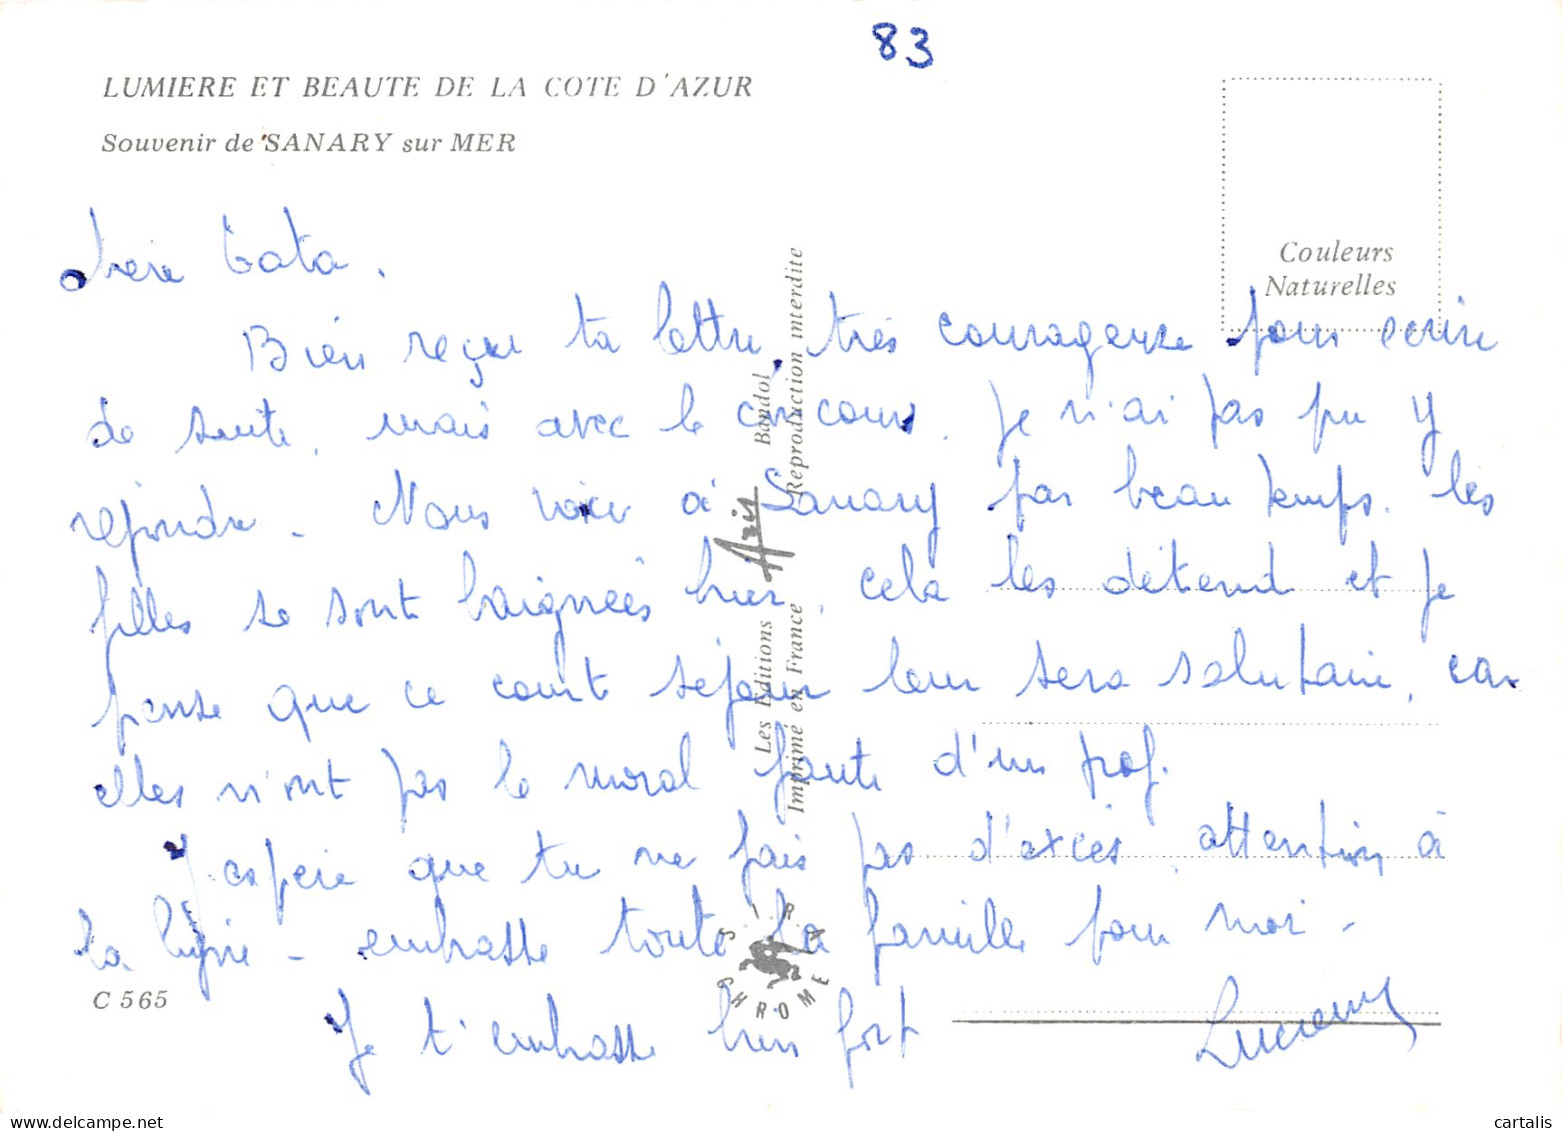 83
LUMIERE ET BEAUTE DE LA COTE D'AZUR
Souvenir de SANARY sur MER
Couleurs
Naturelles
chère Tata.
Bien reçue ta lettre, très courageuse pour ecrire
de suite, mais avec le concours, Je n'ai pas pu y
repondre - Nous voici à Sanary par beau temps. les
filles se sont baignées hier, cela les détend et je
pense que ce court séjour leur sera salutaire, car
elles n'ont pas le moral faute d'un prof.
J'espère que tu ne fais pas d'excès, attention à
ta ligne - embrasse toute la famille pour moi -
Je t'embrasse bien fort
Lucienne
C 565
Les Editions Aris Bandol
Imprimé en France Reproduction interdite
SIRA CHROME
cartalis
www.delcampe.net